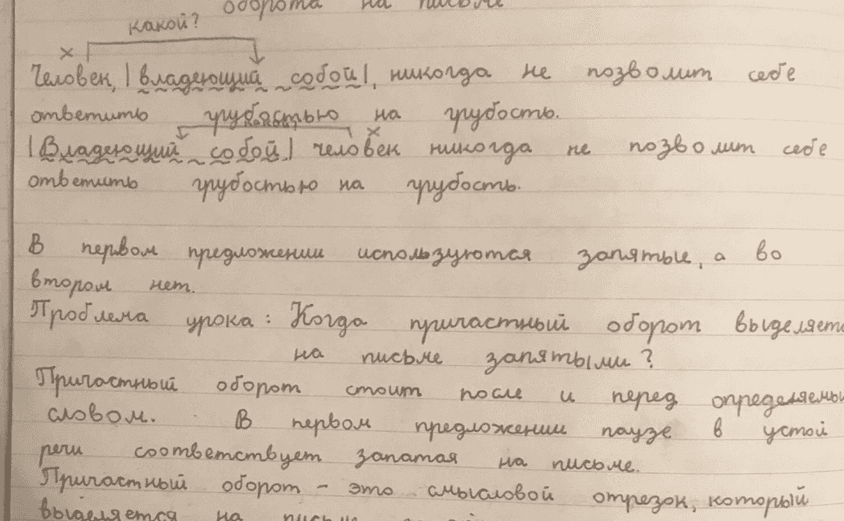 оборота на письме
какой?
Человек, |владеющий собой|, никогда не позволит себе
ответить грубостью на грубость.
|Владеющий собой| человек никогда не позволит себе
ответить грубостью на грубость.
В первом предложении используются запятые, а во
втором нет.
Проблема урока: Когда причастный оборот выделяет
на письме запятыми?
Причастный оборот стоит после и перед определяемы
словом. В первом предложении паузе в устой
речи соответствует запатая на письме.
Причастный оборот – это смысловой отрезок, который
выделяется на письме